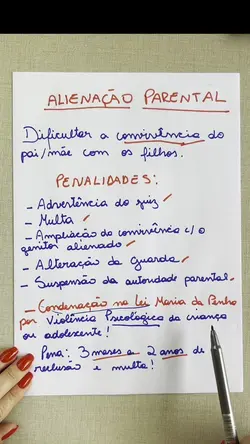 ALIENAÇÃO PARENTAL
Dificultar a convivência do
pai/mãe com os filhos.
PENALIDADES:
- Advertência do juiz
- Multa
- Ampliação da convivência c/ o
genitor alienado
- Alteração da guarda
- Suspensão da autoridade parental
- Condenação na Lei Maria da Penha
por Violência Psicológica da criança
ou adolescente!
Pena: 3 meses a 2 anos de
reclusão e multa!